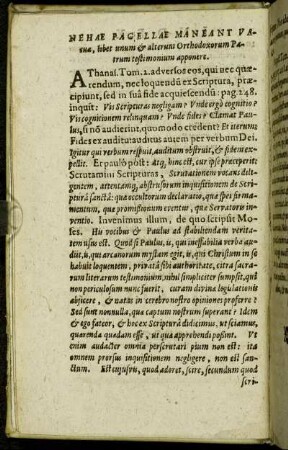 NEHAE PAGELLAE MANEANT VA-
cua, lubet unum & alterum Orthodoxorum Pa-
trum testimonium apponere.
AThanas. Tom. 2. adversos eos, qui nec quæ-
rendum, nec loquendū ex Scriptura, præ-
cipiunt, sed in suâ fide acquiescendū: pag 248.
inquit: Vis Scripturas negligam? Vnde ergò cognitio?
Vis cognitionem relinquam? Vnde fides? Clamat Pau-
lus, si nō audierint, quomodo credent? Et iterum:
Fides ex auditu: auditus autem per verbum Dei.
Igitur qui verbum respuit, auditum obstruit, & fidem ex-
pellit. Er paulò pòst: Atq, hinc est, cur ipse præceperit:
Scrutamini Scripturas, Scrutationem vocans dili-
gentem, attentamq, abstrusorum inquisitionem de Scri-
pturâ sanctâ: quæ occultorum declaratio, quæ spei firma-
mentum, quæ promissionum eventus, quæ Servatoris in-
ventio. Invenimus illum, de quo scripsit Mo-
ses. His vocibus & Paulus ad stabiliendam verita-
tem usus est. Quod si Paulus, is, qui ineffabilia verba au-
diit, is, qui arcanorum mystam egit, is, qui Christum in se
habuit loquentem, privatâ sibi authoritate, citra sacra-
rum literarum testimonium, nihil simpliciter sumpsit, quî
non periculosum nunc fuerit, curam divinæ legislationis
abjicere, & natas in cerebro nostro opiniones proferre?
Sed sunt nonnulla, quæ captum nostrum superant? Idem
& ego fateor, & hoc ex Scripturâ didicimus, ut sciamus,
quærenda quædam esse, ut quæ apprehendi possint. Vt
enim audacter omnia perscrutari pium non est: ita
omnem prorsus inquisitionem negligere, non est san-
ctum. Est cujusvis, quod adoret, scire, secundum quod
scri-